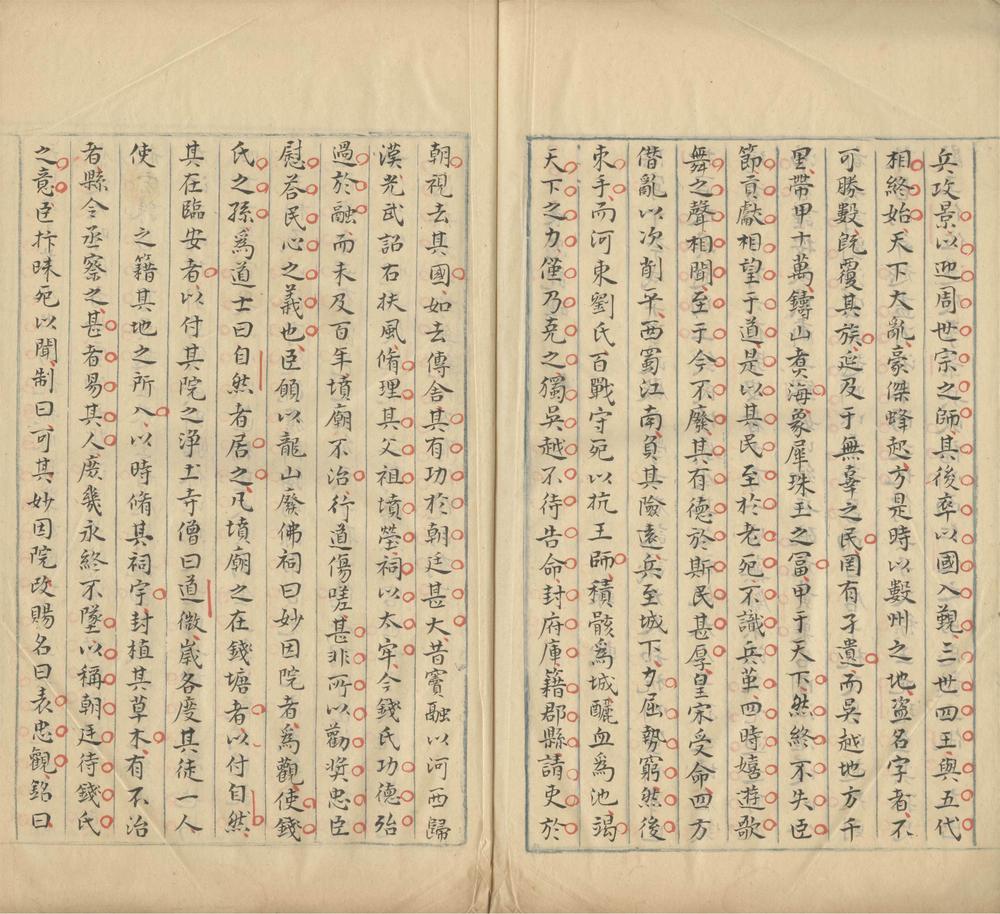 兵攻景以迎周世宗之師其後卒以國入覲三世四王與五代
相終始天下大亂豪傑蜂起方是時以數州之地盜名字者不
可勝數既覆其族延及于無辜之民罔有孑遺而吳越地方千
里帶甲十萬鑄山煑海象犀珠玉之冨甲于天下然終不失臣
節貢獻相望于道是以其民至於老死不識兵革四時嬉遊歌
舞之聲相聞至于今不廢其有德於斯民甚厚皇宋受命四方
僭亂以次削平西蜀江南負其險遠兵至城下力屈勢窮然後
束手而河東劉氏百戰守死以抗王師積骸為城釃血為池竭
天下之力僅乃克之獨吳越不待告命封府庫籍郡縣請吏於
朝視去其國如去傳舍其有功於朝廷甚大昔竇融以河西歸
漢光武詔右扶風脩理其父祖墳塋祠以太牢今錢氏功德殆
過於融而未及百年墳廟不治行道傷嗟甚非所以勸奬忠臣
慰荅民心之義也臣願以龍山廢佛祠曰妙因院者為觀使錢
氏之孫為道士曰自然者居之凡墳廟之在錢塘者以付自然
其在臨安者以付其院之浄土寺僧曰道微嵗各度其徒一人
使之籍其地之所入以時脩其祠宇封植其草木有不治
者縣令丞察之甚者易其人庻幾永終不墜以稱朝廷待錢氏
之意臣抃昧死以聞制曰可其妙因院改賜名曰表忠觀銘曰